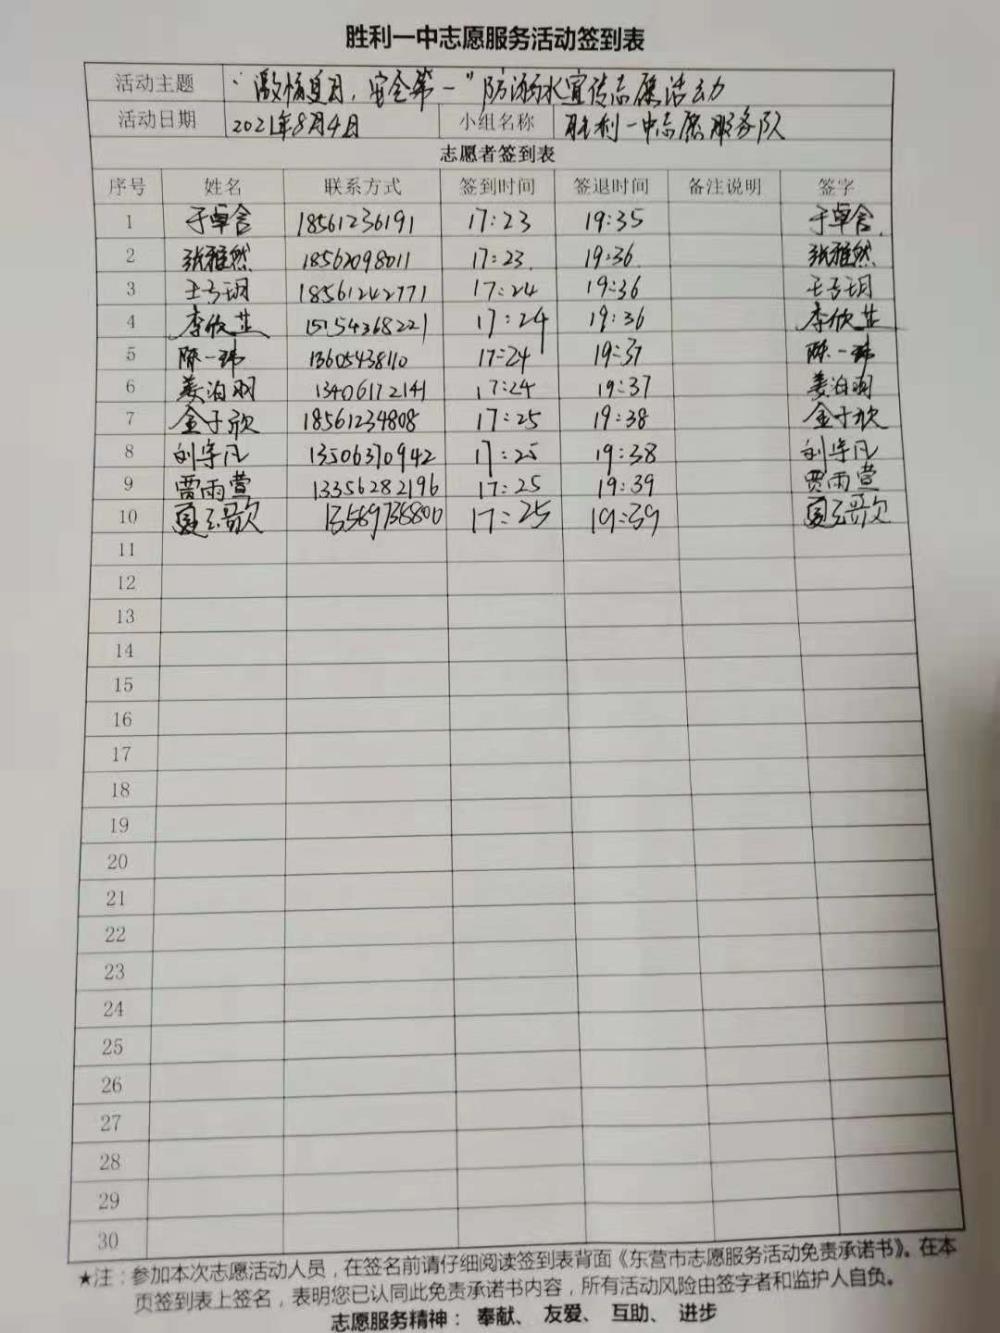 胜利一中志愿服务活动签到表
活动主题 “激情夏日，安全第一”防溺水宣传志愿活动
活动日期 2021年8月4日 小组名称 胜利一中志愿服务队
志愿者签到表
序号 姓名 联系方式 签到时间 签退时间 备注说明 签字
1 于卓含 18561236191 17:23 19:35 于卓含
2 张雅然 18562098011 17:23 19:36 张雅然
3 王子玥 18561242771 17:24 19:36 王子玥
4 李欣芷 15154368221 17:24 19:36 李欣芷
5 陈一玮 13605438110 17:24 19:37 陈一玮
6 姜泊羽 13406172141 17:24 19:37 姜泊羽
7 金子欣 18561234808 17:25 19:38 金子欣
8 刘宇凡 13506370942 17:25 19:38 刘宇凡
9 贾雨萱 13356282196 17:25 19:39 贾雨萱
10 夏玉歌 13589738800 17:25 19:39 夏玉歌
11
12
13
14
15
16
17
18
19
20
21
22
23
24
25
26
27
28
29
30
★注：参加本次志愿活动人员，在签名前请仔细阅读签到表背面《东营市志愿服务活动免责承诺书》。在本
页签到表上签名，表明您已认同此免责承诺书内容，所有活动风险由签字者和监护人自负。
志愿服务精神： 奉献、 友爱、 互助、 进步